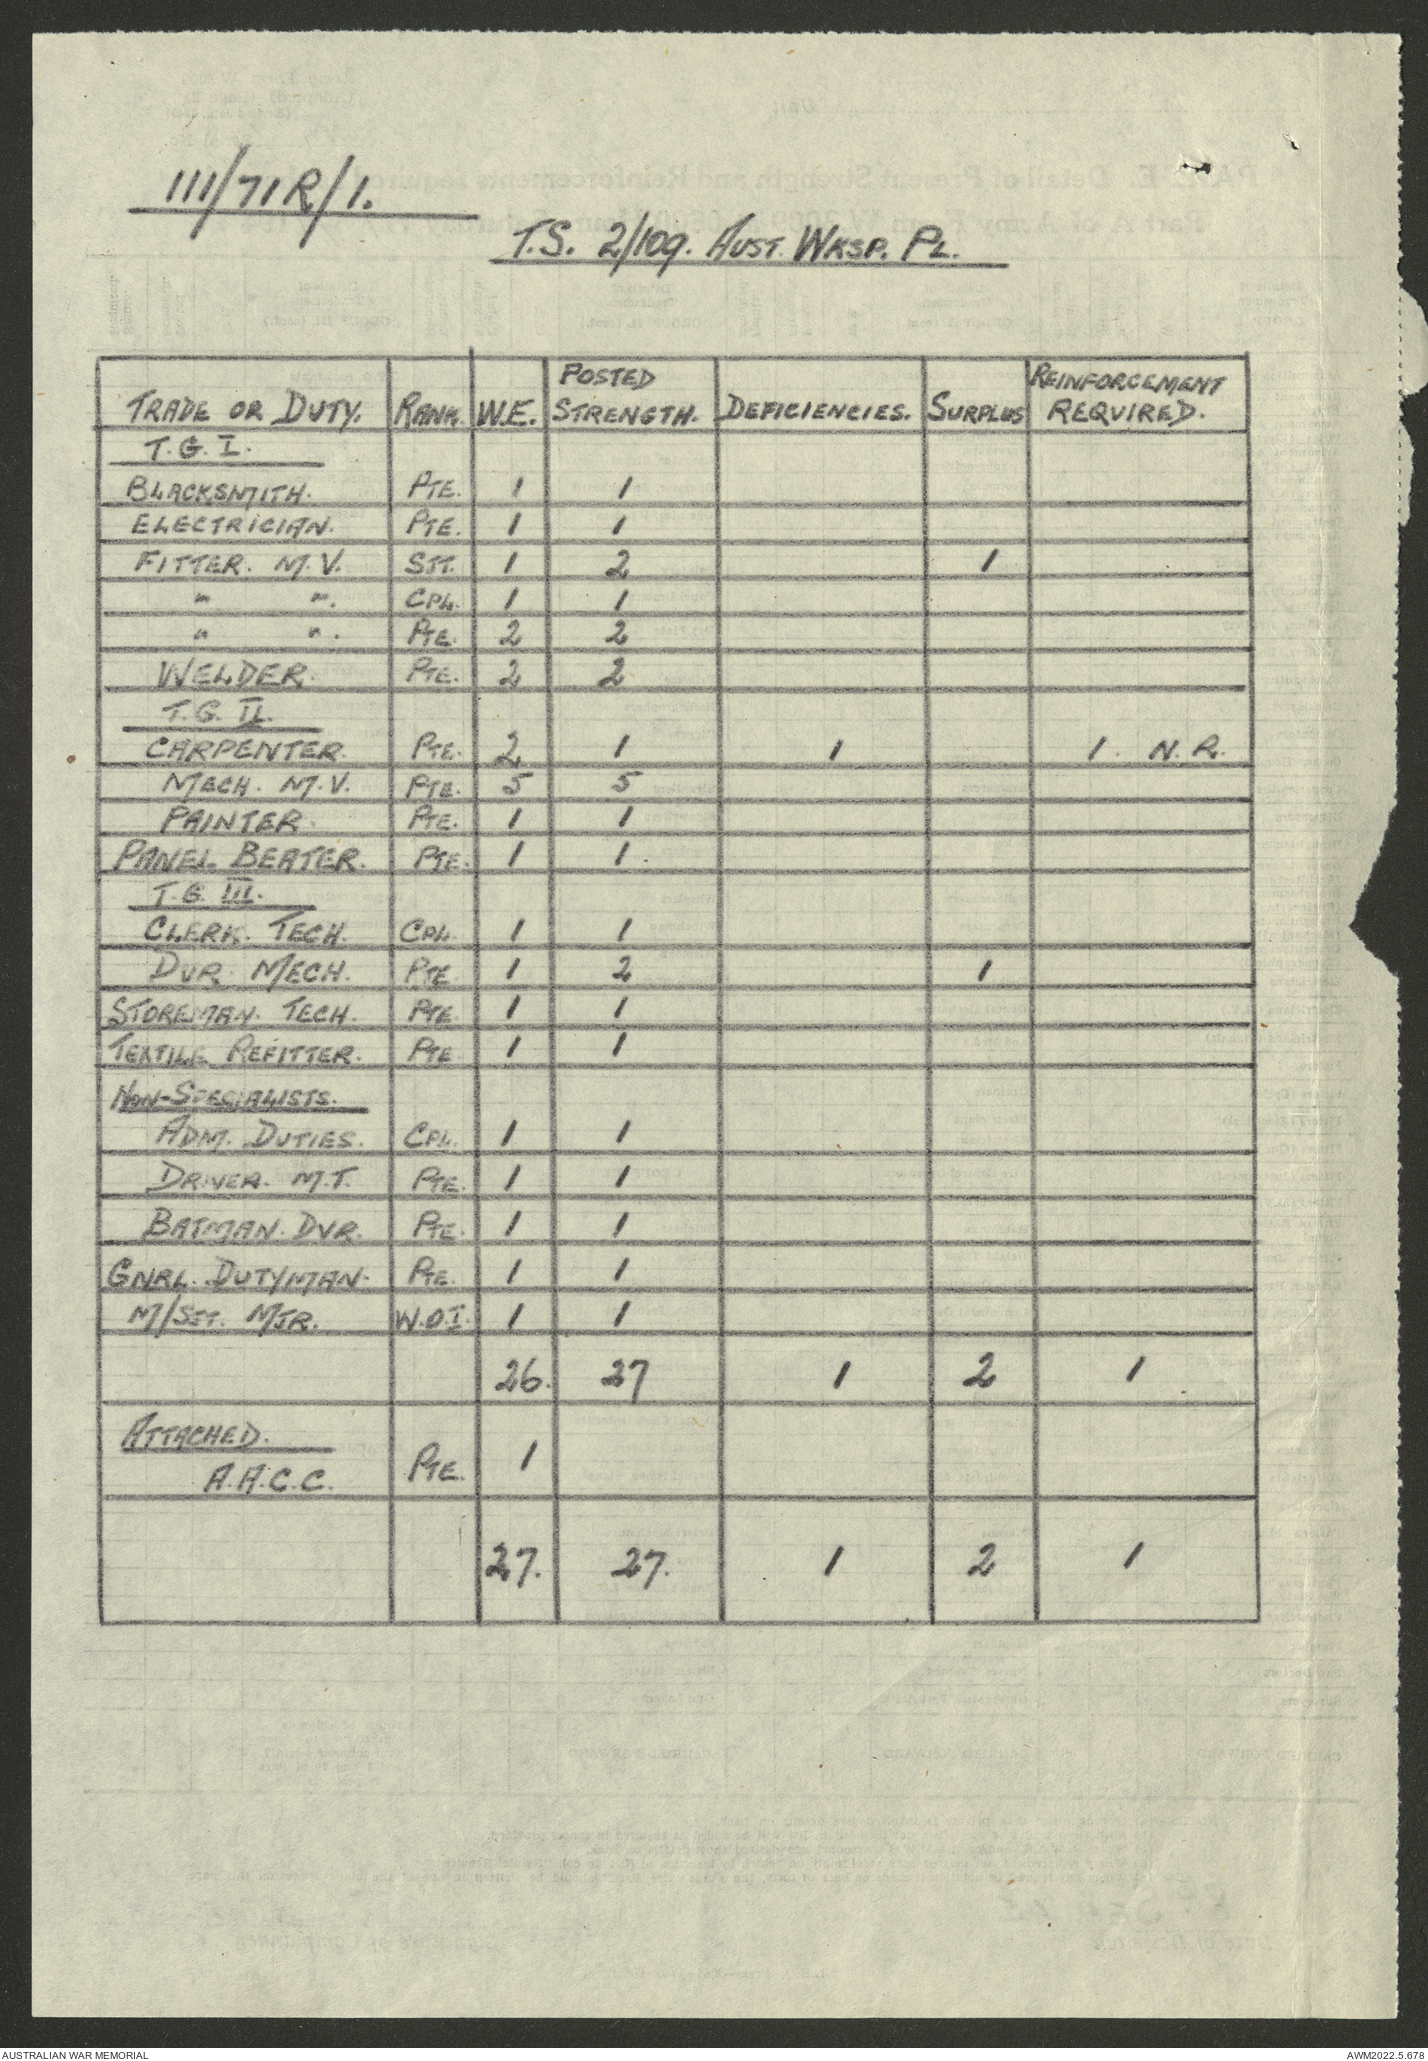 111/71R/1.
T.S. 2/109. AUST. WKSP. PL.
TRADE OR DUTY. RANK. W.E. POSTED STRENGTH. DEFICIENCIES. SURPLUS REINFORCEMENT REQUIRED.
T.G. I.
BLACKSMITH. PTE. 1 1
ELECTRICIAN. PTE. 1 1
FITTER. M.V. SJT. 1 2 1
" ". CPL. 1 1
" ". PTE. 2 2
WELDER. PTE. 2 2
T.G. II.
CARPENTER. PTE. 2 1 1 1. N.R.
MECH. M.V. PTE. 5 5
PAINTER. PTE. 1 1
PANEL BEATER. PTE. 1 1.
T.G. III.
CLERK. TECH. CPL. 1 1
DVR. MECH. PTE. 1 2 1
STOREMAN. TECH. PTE. 1 1
TEXTILE REFITTER. PTE 1 1
NON-SPECIALISTS.
ADM. DUTIES. CPL. 1 1
DRIVER. M.T. PTE. 1 1
BATMAN. DVR. PTE. 1 1
GNRL. DUTYMAN. PTE. 1 1
M/SJT. MJR. W.O.I. 1 1
26. 27 1 2 1
ATTACHED.
A.A.C.C. PTE. 1
27. 27. 1 2 1
AUSTRALIAN WAR MEMORIAL AWM2022.5.678